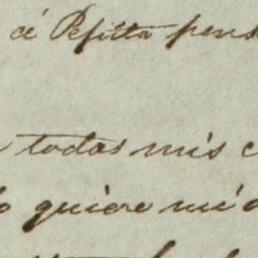 á Pepitta pens
todas mis c
quiere mi